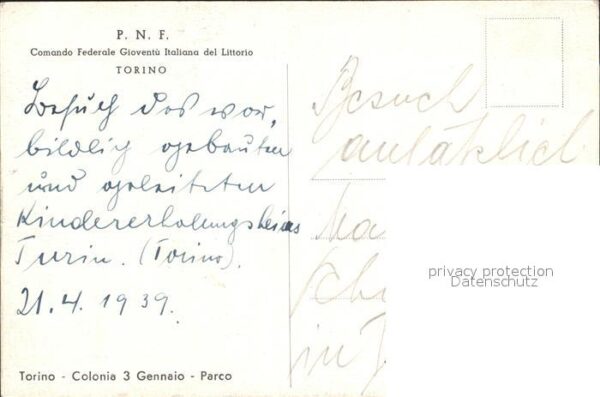 P. N. F.
Comando Federale Gioventù Italiana del Littorio
TORINO
Besuch des vor-
bildlich gebauten
und geleiteten
Kindererholungsheims
Turin. (Torino).
21.4.1939.
Besuch
anläßlich
in
privacy protection
Datenschutz
Torino - Colonia 3 Gennaio - Parco